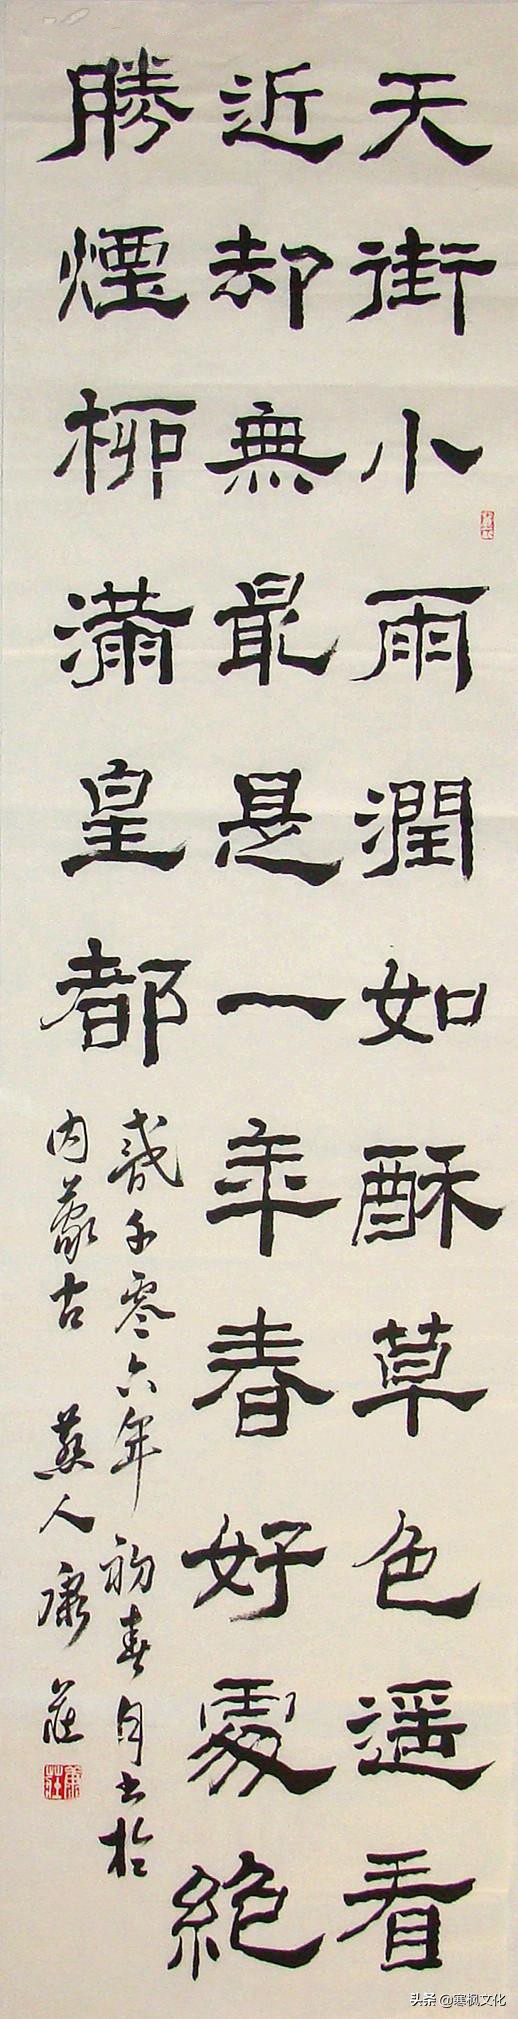 天街小雨潤如酥草色遥看
近却無最是一年春好處絕
勝煙柳滿皇都
貳千零六年初春月書於
内蒙古 燕人康莊
康莊
头条 @寒枫文化